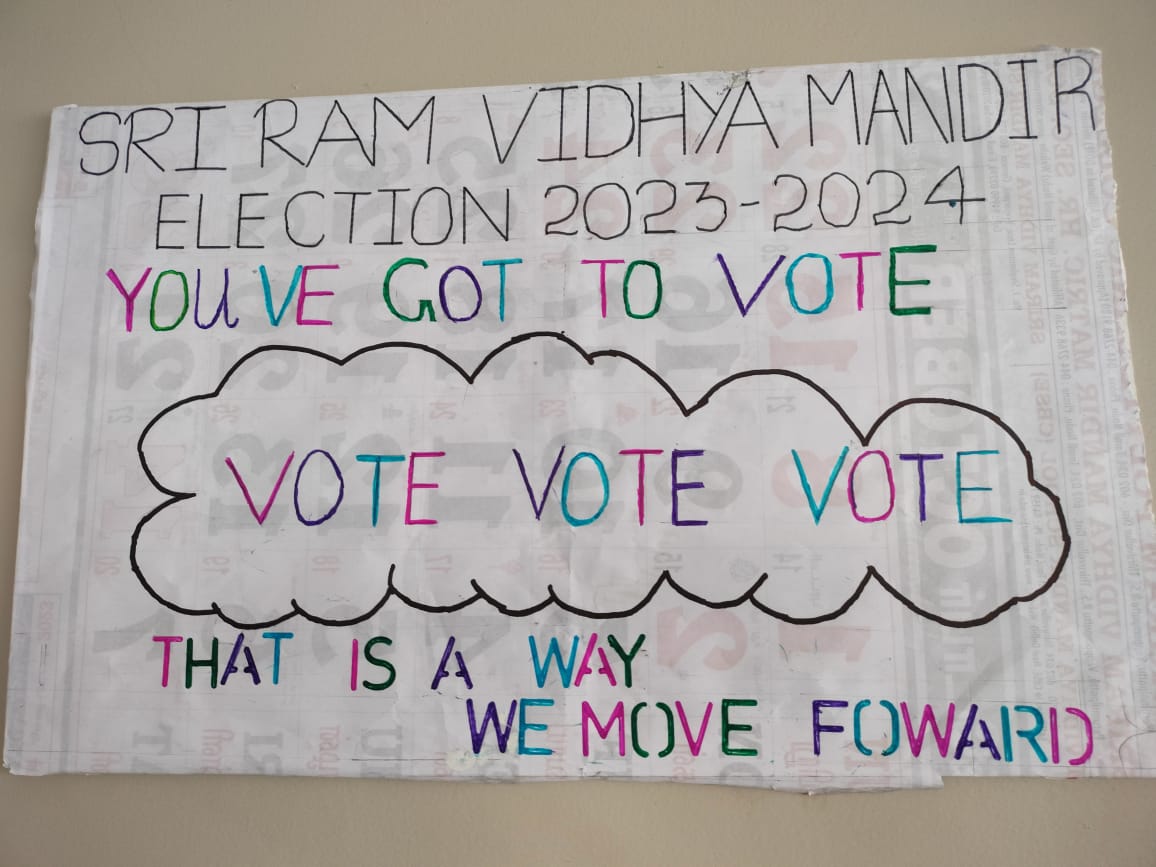 SRI RAM VIDHYA MANDIR
ELECTION 2023-2024
YOU'VE GOT TO VOTE
VOTE VOTE VOTE
THAT IS A WAY
WE MOVE FOWARD